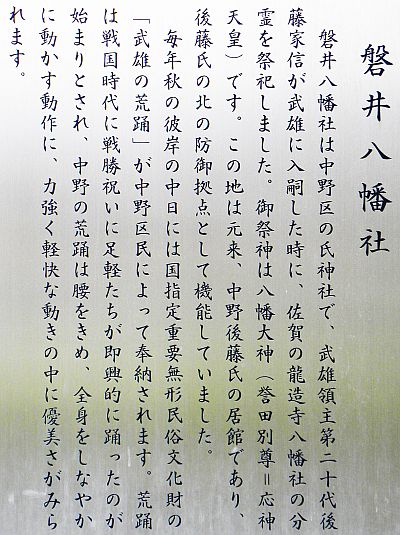 磐井八幡社
磐井八幡社は中野区の氏神社で、武雄領主第二十代後
藤家信が武雄に入嗣した時に、佐賀の龍造寺八幡社の分
霊を祭祀しました。御祭神は八幡大神（誉田別尊＝応神
天皇）です。この地は元来、中野後藤氏の居館であり、
後藤氏の北の防御拠点として機能していました。
毎年秋の彼岸の中日には国指定重要無形民俗文化財の
「武雄の荒踊」が中野区民によって奉納されます。荒踊
は戦国時代に戦勝祝いに足軽たちが即興的に踊ったのが
始まりとされ、中野の荒踊は腰をきめ、全身をしなやか
に動かす動作に、力強く軽快な動きの中に優美さがみら
れます。